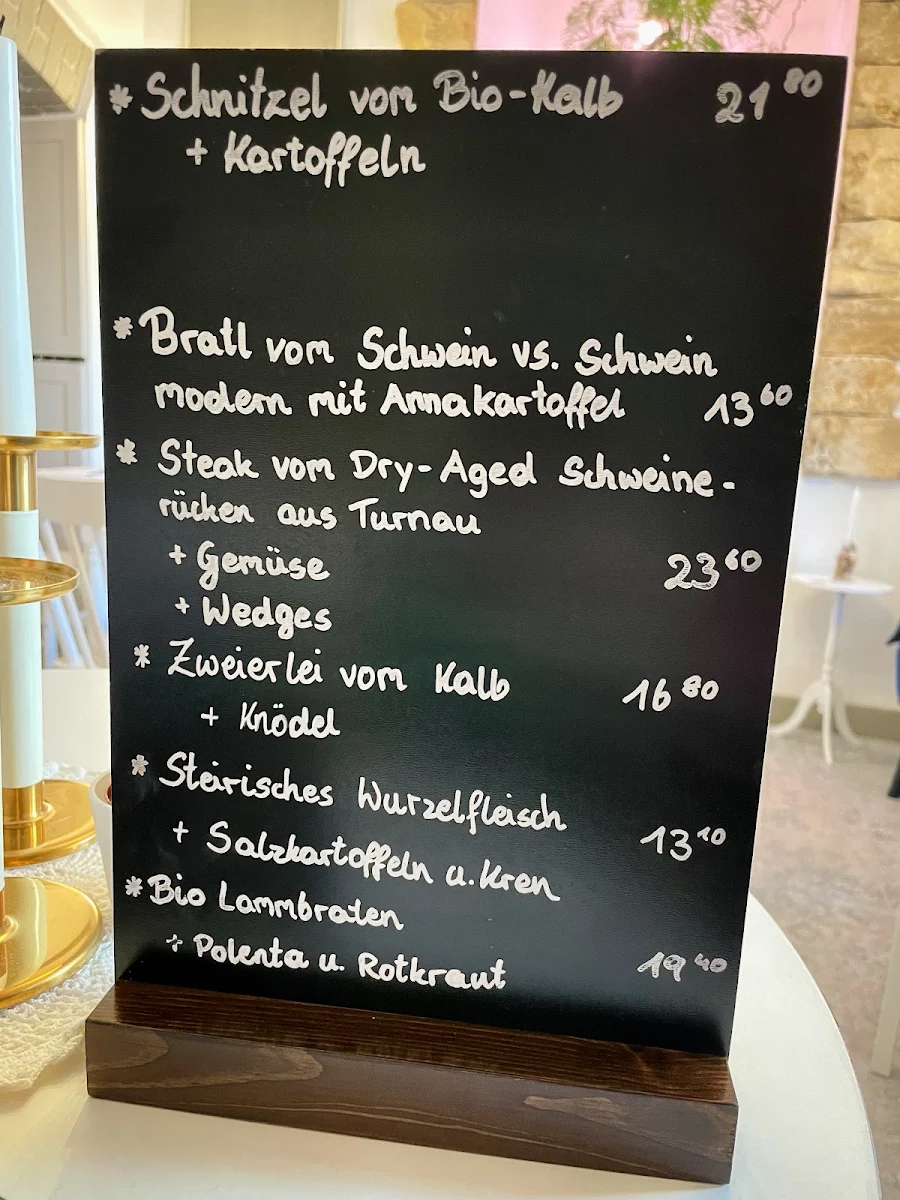 * Schnitzel vom Bio-Kalb 21 80
+ Kartoffeln
* Bratl vom Schwein vs. Schwein
modern mit Annakartoffel 13 60
* Steak vom Dry-Aged Schweine-
rücken aus Turnau
+ Gemüse 23 60
+ Wedges
* Zweierlei vom Kalb 16 80
+ Knödel
* Steirisches Wurzelfleisch
+ Salzkartoffeln u. Kren 13 10
* Bio Lammbraten
+ Polenta u. Rotkraut 19 40